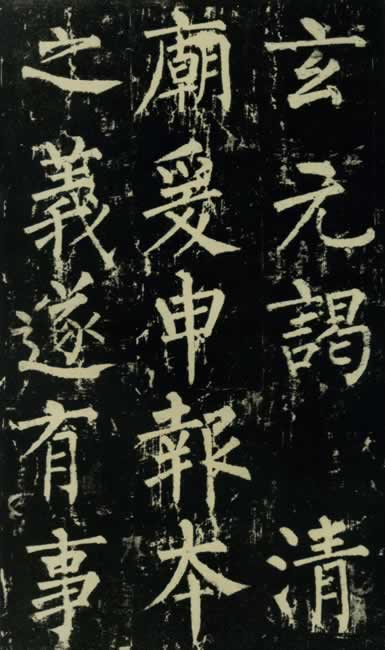 玄元謁清
廟爰申報本
之義遂有事